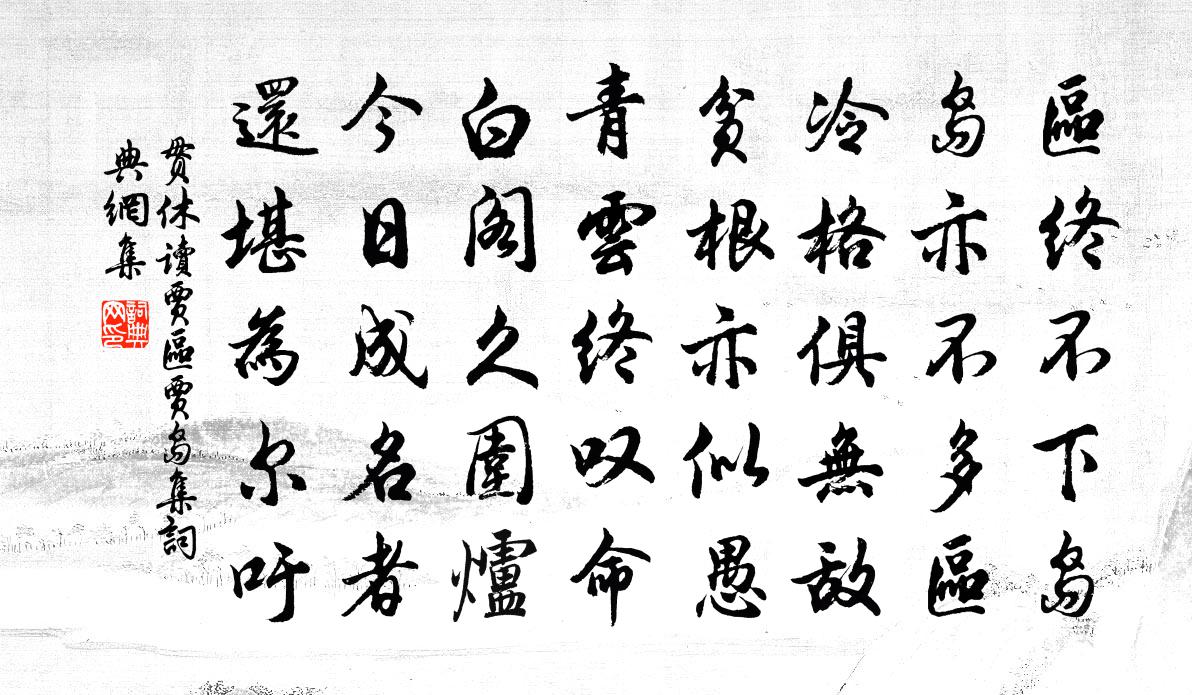 區終不下島
島亦不多區
冷格俱無敵
貧根亦似愚
青雲終叹命
白閣久圍爐
今日成名者
還堪為尔吁
贯休讀賈區賈島集詞
典網集
詞典
网印